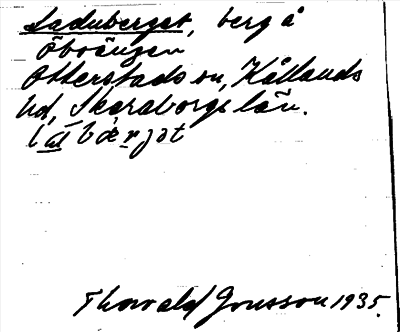 Laduberget, berg å
Öboängen
Otterstads sn, Kållands
hd, Skaraborgs län.
Thorvald Jonsson 1935.